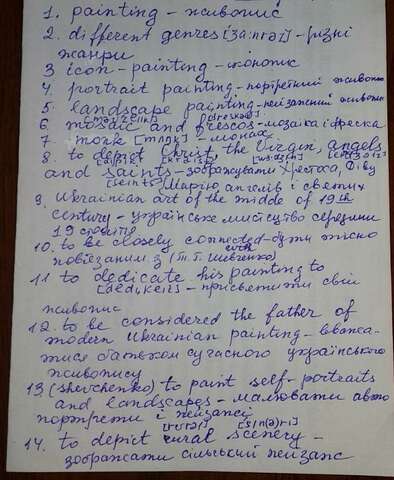 1. painting – живопис
2. different genres [ʒa:nrəz] – різні
жанри
3 icon – painting – іконопис
4. portrait painting – портретний живопис
5. landscape painting – пейзажний живопис
6. mosaic and frescos – мозаїка і фреска
7 monk [mʌŋk] – монах
8. to depict Christ the Virgin, angels
and saints – зображувати Христа, Діву
[seints] Марію ангелів і святих
9. Ukrainian art of the middle of 19th
century – українське мистецтво середини
19 століття
10. to be closely connected with – бути тісно
пов'язаним з (Т.Г. Шевченко)
11 to dedicate his painting to
[dedikeit] – присвятити свій
живопис
12. to be considered the father of
modern Ukrainian painting – вважа-
тися батьком сучасного українського
живопису
13 (Shevchenko) to paint self-portraits
and landscapes – малювати авто
портрети і пейзажі
14. to depict rural scenery –
зображати сільський пейзаж